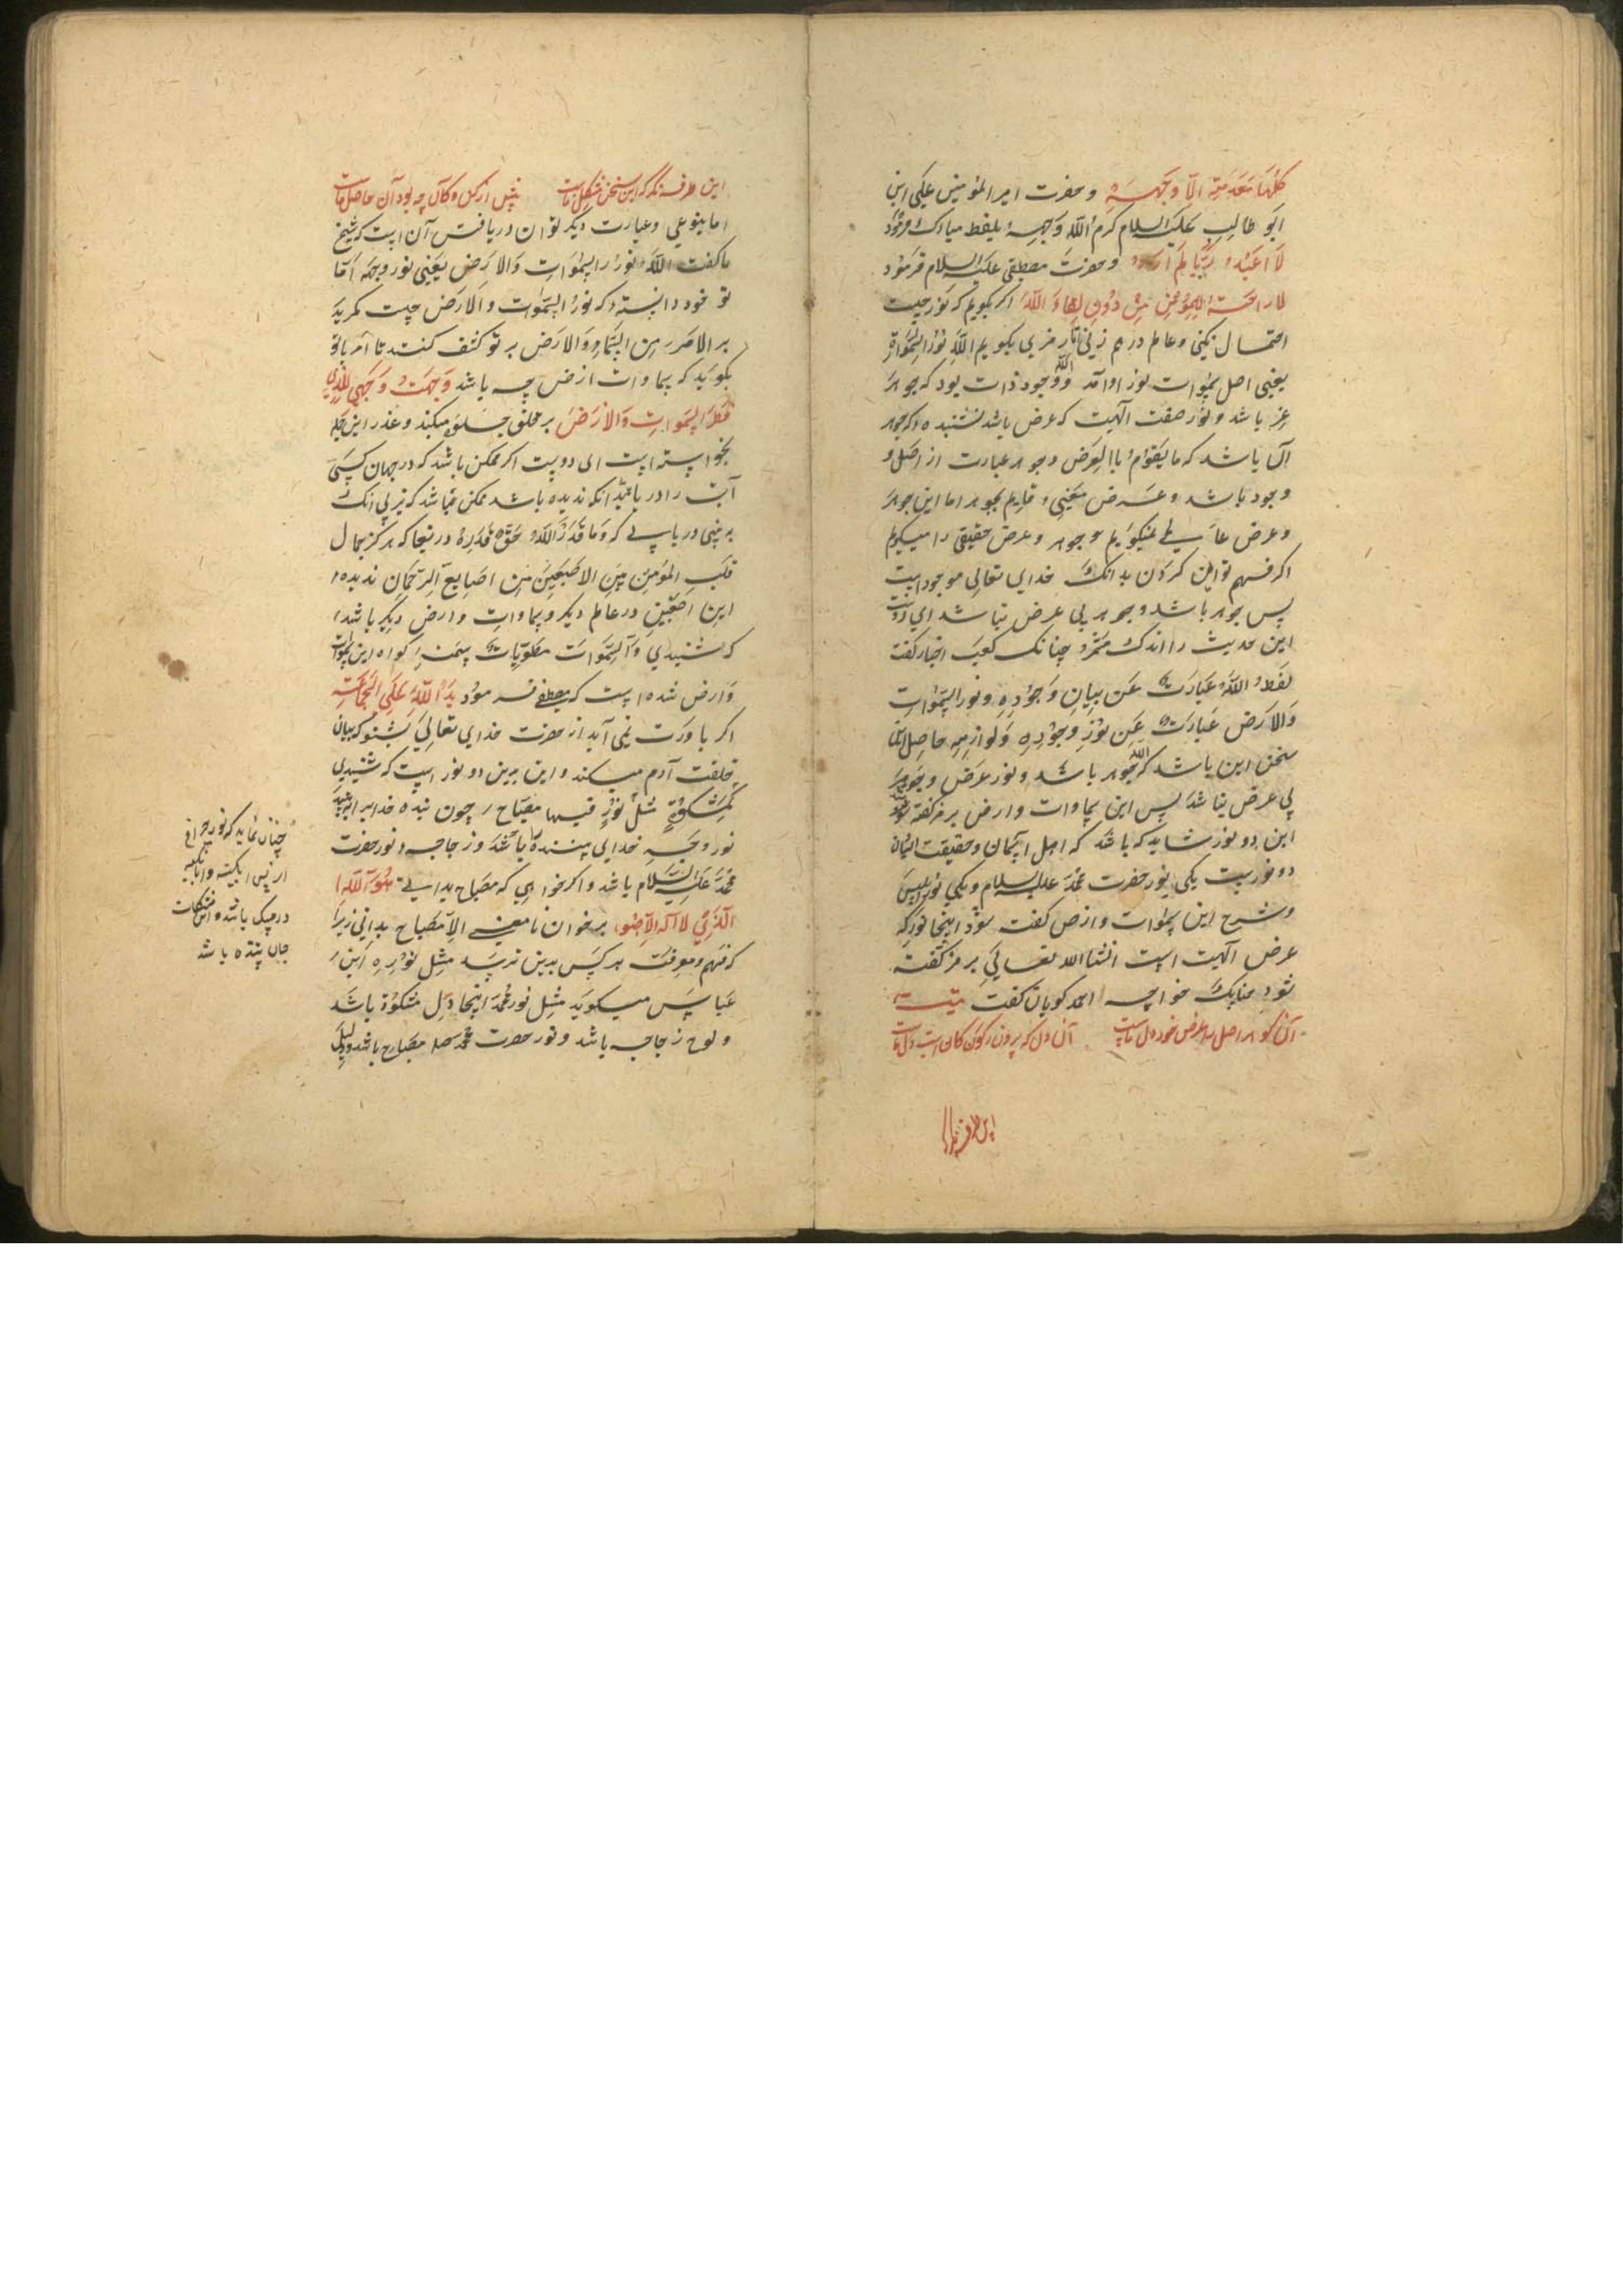 کلها متعدمة الا وجهه و حضرت امیر المؤمنین علی ابن
ابو طالب علیه السلام کرم الله وجهه بلفظ مبارک فرمود
لا اعبد ربا لم اره و حضرت مصطفی علیه السلام فرمود
لا راحة للمؤمن من دون لقاء الله اکر بکویم که نور چیست
احتمال نکنی و عالم درهم زنی اما رمزی بکویم الله نور السموات
یعنی اصل سموات نور او آمد و الله وجود ذات بود که جوهر
عز باشد و نور صفت الهیت که عرض باشد نشنیده که جوهر
آن باشد که ما یقوم باالعرض و جوهر عبارت از اصل و
وجود باشد و عرض معنی قایم بجوهر اما این جوهر
و عرض عالم نمیکویم جوهر و عرض حقیقی را میکویم
اکر فهم توانی کردن بدانک خدای تعالی موجود است
پس جوهر باشد و جوهر بی عرض نباشد ای دوست
این حدیث را اندک مشمر چنانک کعب اخبار کفت
لفظ الله عبارت عن بیان وجوده و نور السموات
والارض عبارت عن نور وجوده و لوازمه حاصل این
سخن این باشد که الله جوهر باشد و نور عرض و جوهر
بی عرض نباشد پس این سماوات و ارض برمز کفته شود
این دو نور شاید که باشد که اصل آسمان و حقیقت ایشان
دو نور است یکی نور حضرت محمد علیه السلام و یکی نور ابلیس
و شرح این سموات و ارض کفت شود اینجا نور که
عرض الهیت است انشاالله تعالی برمز کفته
شود چنانک خواجه احمد کویان کفت بیت
آن کوهر اصل را عرض خود دل ماست آن دل که برون ز کون کان است دل ماست
این طرفه نکر
این طرفه نکر که این سخن مشکل ماست پیش از کن و کان چه بود آن حاصل ماست
اما بنوعی و عبارت دیکر توان دریافت آن است که شیخ
ما کفت الله نور السموات والارض یعنی نور وجهه اما
تو خود دانسته که نور السموات والارض چیست مکر ید
بر الامر من السماء والارض بر تو کشف کنند تا آمر باتو
بکوید که سماوات ارض چه باشد وجهت وجهی للذی
فطر السموات والارض بر خلق جلوه میکند و عذر این جمله
بخواسته است ای دوست اکر ممکن باشد که در جهان کسی
آب را دریا بیند آنکه ندیده باشد ممکن نباشد که نیز بی آنک
به بینی دریابی که وما قدر الله حق قدره دریغا که هرکز جمال
قلب المؤمن بین الاصبعین من اصابع الرحمان ندیده
این اصبعین در عالم دیکر و سماوات و ارض دیکر باشد
که شنیدی والسموات مطویات بیمینه کواه این سموات
و ارض شده است که مصطفی فرمود ید الله علی الجماعة
اکر باورت نمی آید از حضرت خدای تعالی بشنو که بیان
خلقت آدم میکند و این برین دو نور است که شنیدی
کمشکوة مثل نوره فیها مصباح چون بنده خدا را بیند
نور وجه خدای بیننده باشد و زجاجه نور حضرت
محمد علیه السلام باشد و اکر خواهی که مصباح بدانی هو الله
الذی لا آله الا هو برخوان تا معنی الا مصباح بدانی زیرا
که فهم و معرفت هر کس بدین نرسد مثل نوره ابن
عباس میکوید مثل نور محمد اینجا دل مشکوة باشد
و لوح زجاجه باشد و نور حضرت محمد مصباح باشد و دلیلی
چنان نماید که نور چراغ
از پس آبکینه و آبکینه
در مشکات
جان بنده باشد